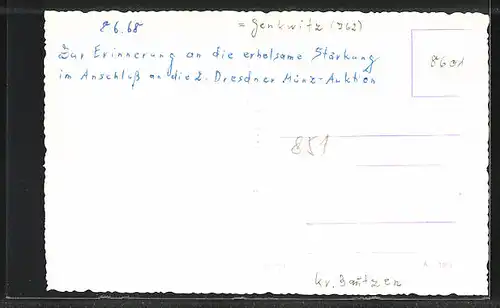 8.6.68
= Jenkwitz (362)
Zur Erinnerung an die erholsame Stärkung
im Anschluß an die 2. Dresdner Münz-Auktion
8601
851
kr. Bautzen